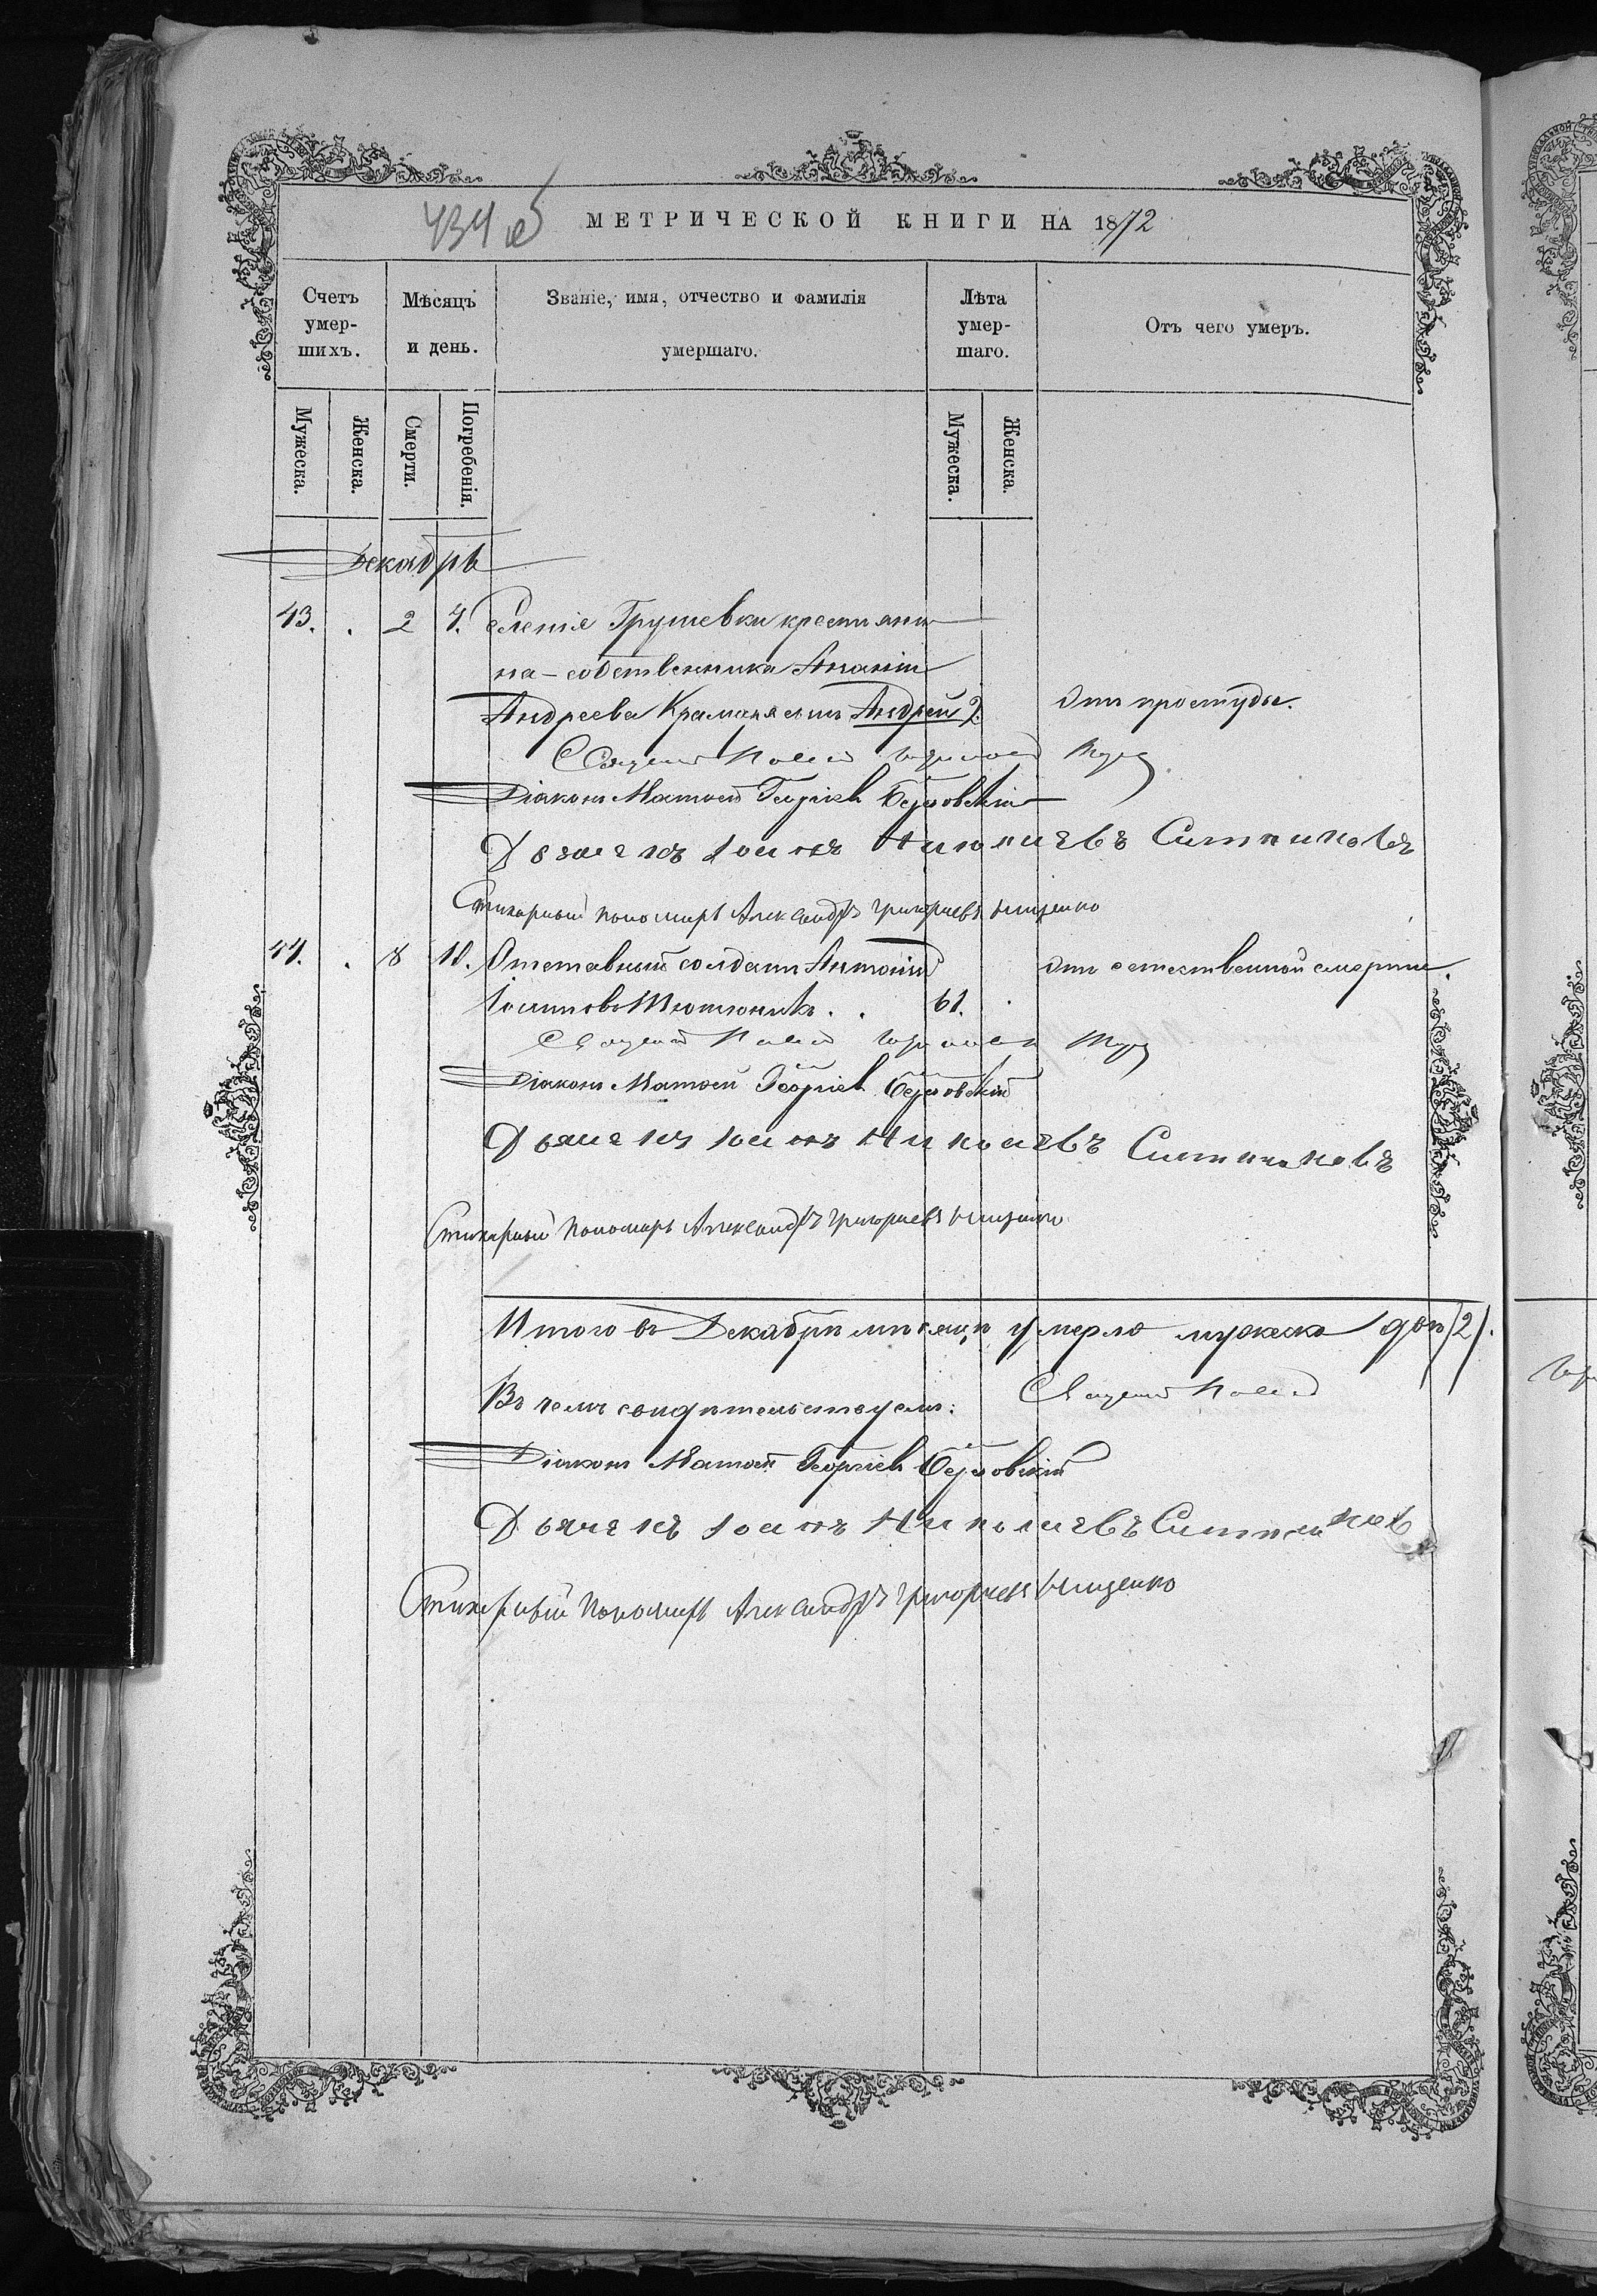 434 об
МЕТРИЧЕСКОЙ КНИГИ НА 1872
Счетъ умер-шихъ.
Мѣсяцъ и день.
Званіе, имя, отчество и фамилія умершаго.
Лѣта умер-шаго.
Отъ чего умеръ.
Мужеска.
Женска.
Смерти.
Погребенія.
Мужеска.
Женска.
Декабрь
43. . 2 4. селенія Грушевки крестьяни
на-собственника Ананіи
Андреева Крамаря сынъ Андрей 2. Отъ простуды.
Священ Павел
Діаконъ Матѳей Георгіевъ
Дьячекъ Іоанъ Николаевъ Ситниковъ
Стихарный пономарь Александръ Григорьевъ Нищенко
44. . 8 10. Отставный солдатъ Антоній отъ естественной смерти.
Іосиповъ Тютюникъ. . 61.
Священ Павел
Діаконъ Матѳей Георгіевъ
Дьячекъ Іоанъ Николаевъ Ситниковъ
Стихарный Пономарь Александръ Григорьевъ Нищенко
Итого въ Декабрѣ мѣсяцѣ умерло мужеска два /2/.
Въ чемъ свидѣтельствуемъ: Священ Павел
Діаконъ Матѳей Георгіевъ
Дьячекъ Іоанъ Николаевъ Ситников
Стихарный Пономарь Александръ Григорьевъ Нищенко